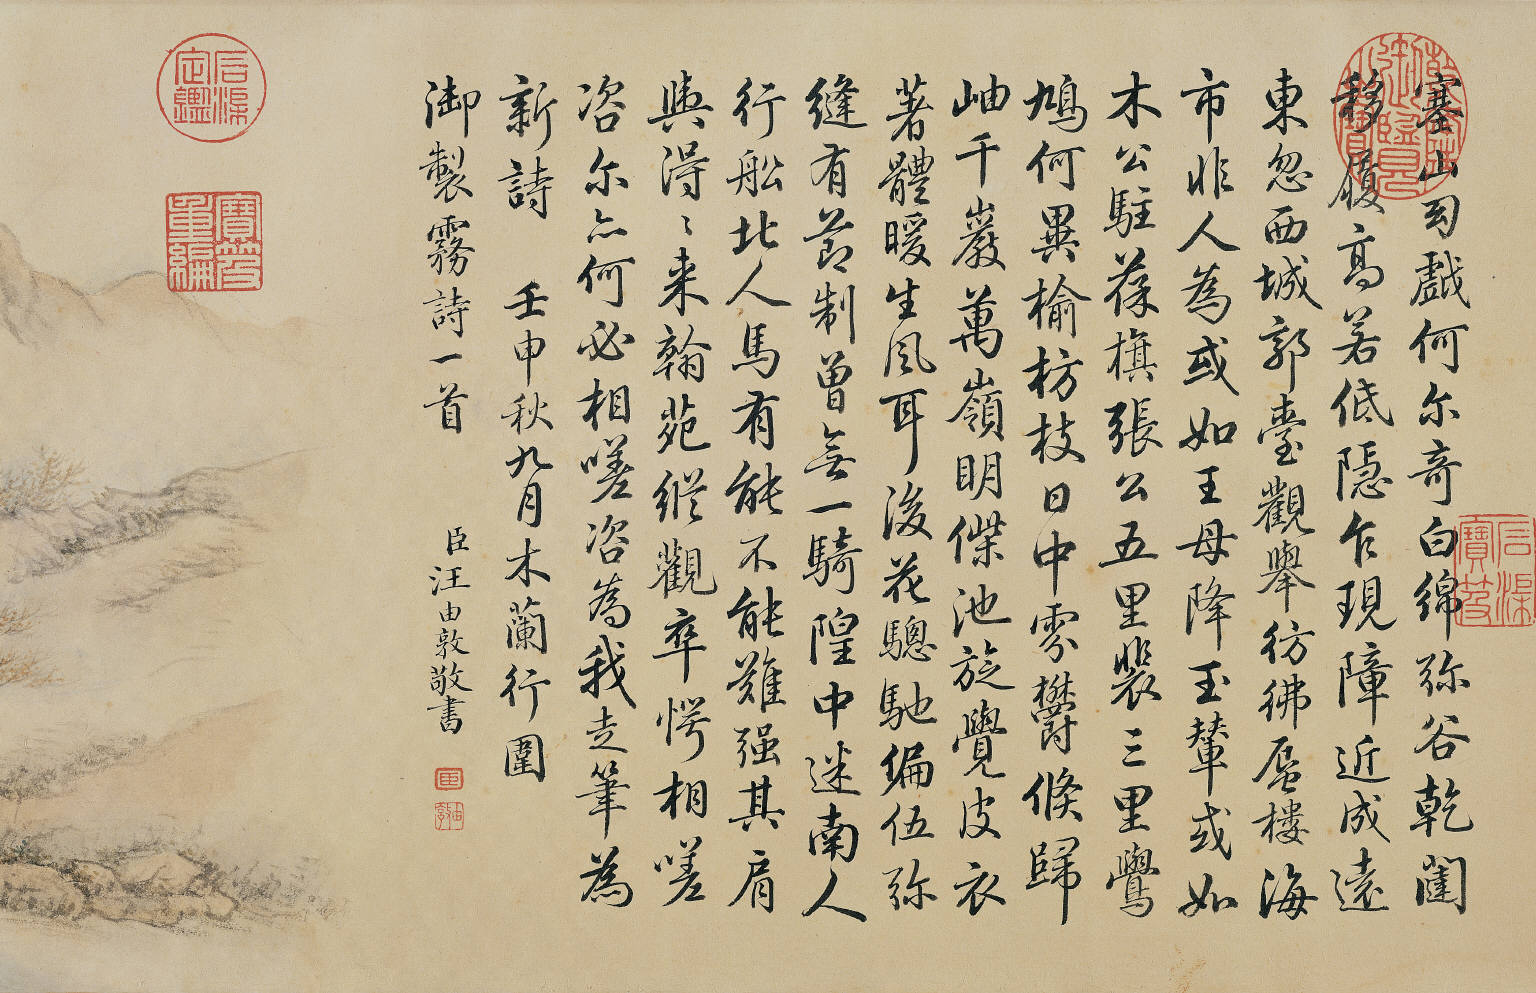 塞山幻戲何尔奇白綿弥谷乾闥
移履高若低隱乍現障近成遠
東忽西城郭臺觀舉彷彿蜃樓海
市非人為或如王母降玉輦或如
木公駐葆旗張公五里裴三里鸎
鳩何異榆枋枝日中雰鬱倏歸
岫千巖萬嶺明傑池旋覺皮衣
著體暖生風耳後花驄馳編伍弥
縫有節制曾無一騎隍中迷南人
行船北人馬有能不能難强其肩
與淂〻来翰苑縱觀卒愕相嗟
咨尔亦何必相嗟咨為我走筆為
新詩 壬申秋九月木蘭行圍
御製霧詩一首
臣汪由敦敬書
乾隆御覽之寶
石渠寶笈
石渠定鑑
寶笈重編